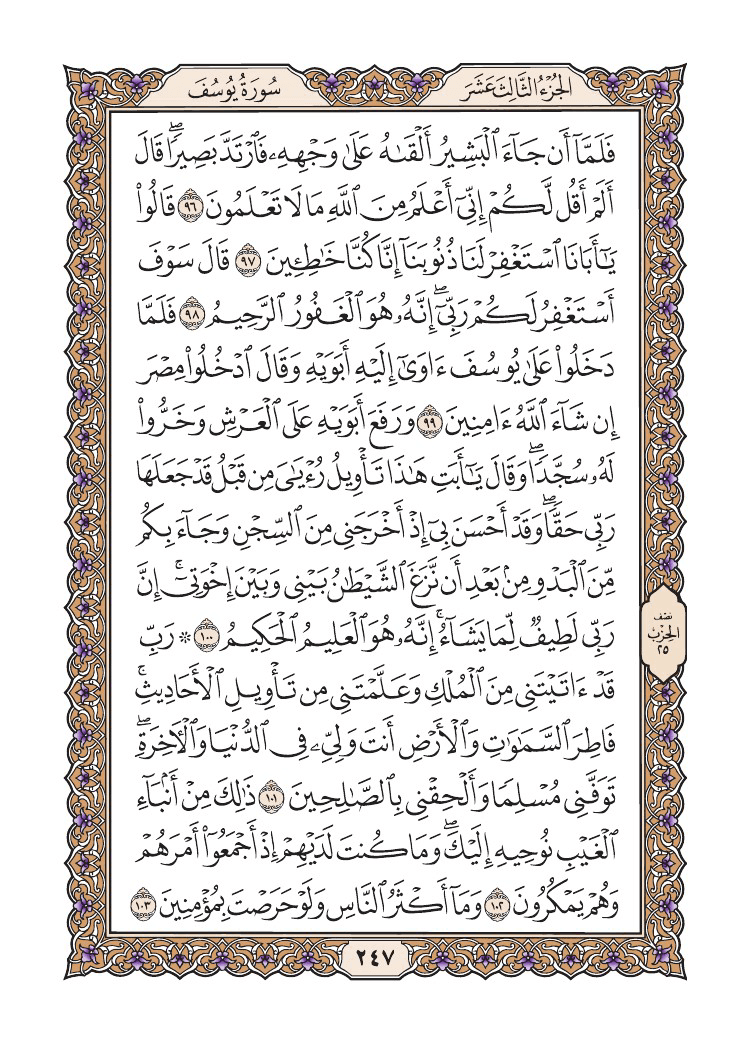 الجُزْءُ الثَّالِثَ عَشَرَ
سُورَةُ يُوسُفَ
فَلَمَّآ أَن جَآءَ ٱلْبَشِيرُ أَلْقَىٰهُ عَلَىٰ وَجْهِهِۦ فَٱرْتَدَّ بَصِيرًاۖ قَالَ
أَلَمْ أَقُل لَّكُمْ إِنِّىٓ أَعْلَمُ مِنَ ٱللَّهِ مَا لَا تَعْلَمُونَ ٩٦ قَالُوا۟
يَٰٓأَبَانَا ٱسْتَغْفِرْ لَنَا ذُنُوبَنَآ إِنَّا كُنَّا خَٰطِـِٔينَ ٩٧ قَالَ سَوْفَ
أَسْتَغْفِرُ لَكُمْ رَبِّىٓۖ إِنَّهُۥ هُوَ ٱلْغَفُورُ ٱلرَّحِيمُ ٩٨ فَلَمَّا
دَخَلُوا۟ عَلَىٰ يُوسُفَ ءَاوَىٰٓ إِلَيْهِ أَبَوَيْهِ وَقَالَ ٱدْخُلُوا۟ مِصْرَ
إِن شَآءَ ٱللَّهُ ءَامِنِينَ ٩٩ وَرَفَعَ أَبَوَيْهِ عَلَى ٱلْعَرْشِ وَخَرُّوا۟
لَهُۥ سُجَّدًاۖ وَقَالَ يَٰٓأَبَتِ هَٰذَا تَأْوِيلُ رُءْيَٰىَ مِن قَبْلُ قَدْ جَعَلَهَا
رَبِّى حَقًّاۖ وَقَدْ أَحْسَنَ بِىٓ إِذْ أَخْرَجَنِى مِنَ ٱلسِّجْنِ وَجَآءَ بِكُم
مِّنَ ٱلْبَدْوِ مِنۢ بَعْدِ أَن نَّزَغَ ٱلشَّيْطَٰنُ بَيْنِى وَبَيْنَ إِخْوَتِىٓۚ إِنَّ
رَبِّى لَطِيفٌ لِّمَا يَشَآءُۚ إِنَّهُۥ هُوَ ٱلْعَلِيمُ ٱلْحَكِيمُ ١٠٠ ۞ رَبِّ
قَدْ ءَاتَيْتَنِى مِنَ ٱلْمُلْكِ وَعَلَّمْتَنِى مِن تَأْوِيلِ ٱلْأَحَادِيثِۚ
فَاطِرَ ٱلسَّمَٰوَٰتِ وَٱلْأَرْضِ أَنتَ وَلِىِّۦ فِى ٱلدُّنْيَا وَٱلْءَاخِرَةِۖ
تَوَفَّنِى مُسْلِمًا وَأَلْحِقْنِى بِٱلصَّٰلِحِينَ ١٠١ ذَٰلِكَ مِنْ أَنۢبَآءِ
ٱلْغَيْبِ نُوحِيهِ إِلَيْكَۖ وَمَا كُنتَ لَدَيْهِمْ إِذْ أَجْمَعُوٓا۟ أَمْرَهُمْ
وَهُمْ يَمْكُرُونَ ١٠٢ وَمَآ أَكْثَرُ ٱلنَّاسِ وَلَوْ حَرَصْتَ بِمُؤْمِنِينَ ١٠٣
نصف
الحزب
٢٥
٢٤٧